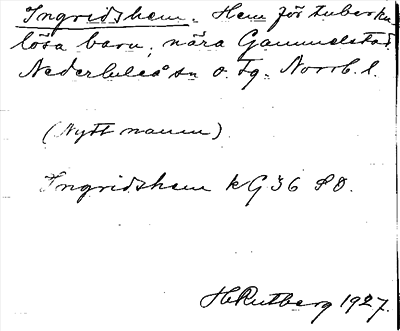 Ingridshem. Hem för tuberku-
lösa barn, nära Gammelstad.
Nederluleå sn o. tg. Norrb. l.
(Nytt namn)
Ingridshem kG36 SO.
H Rutberg 1927.